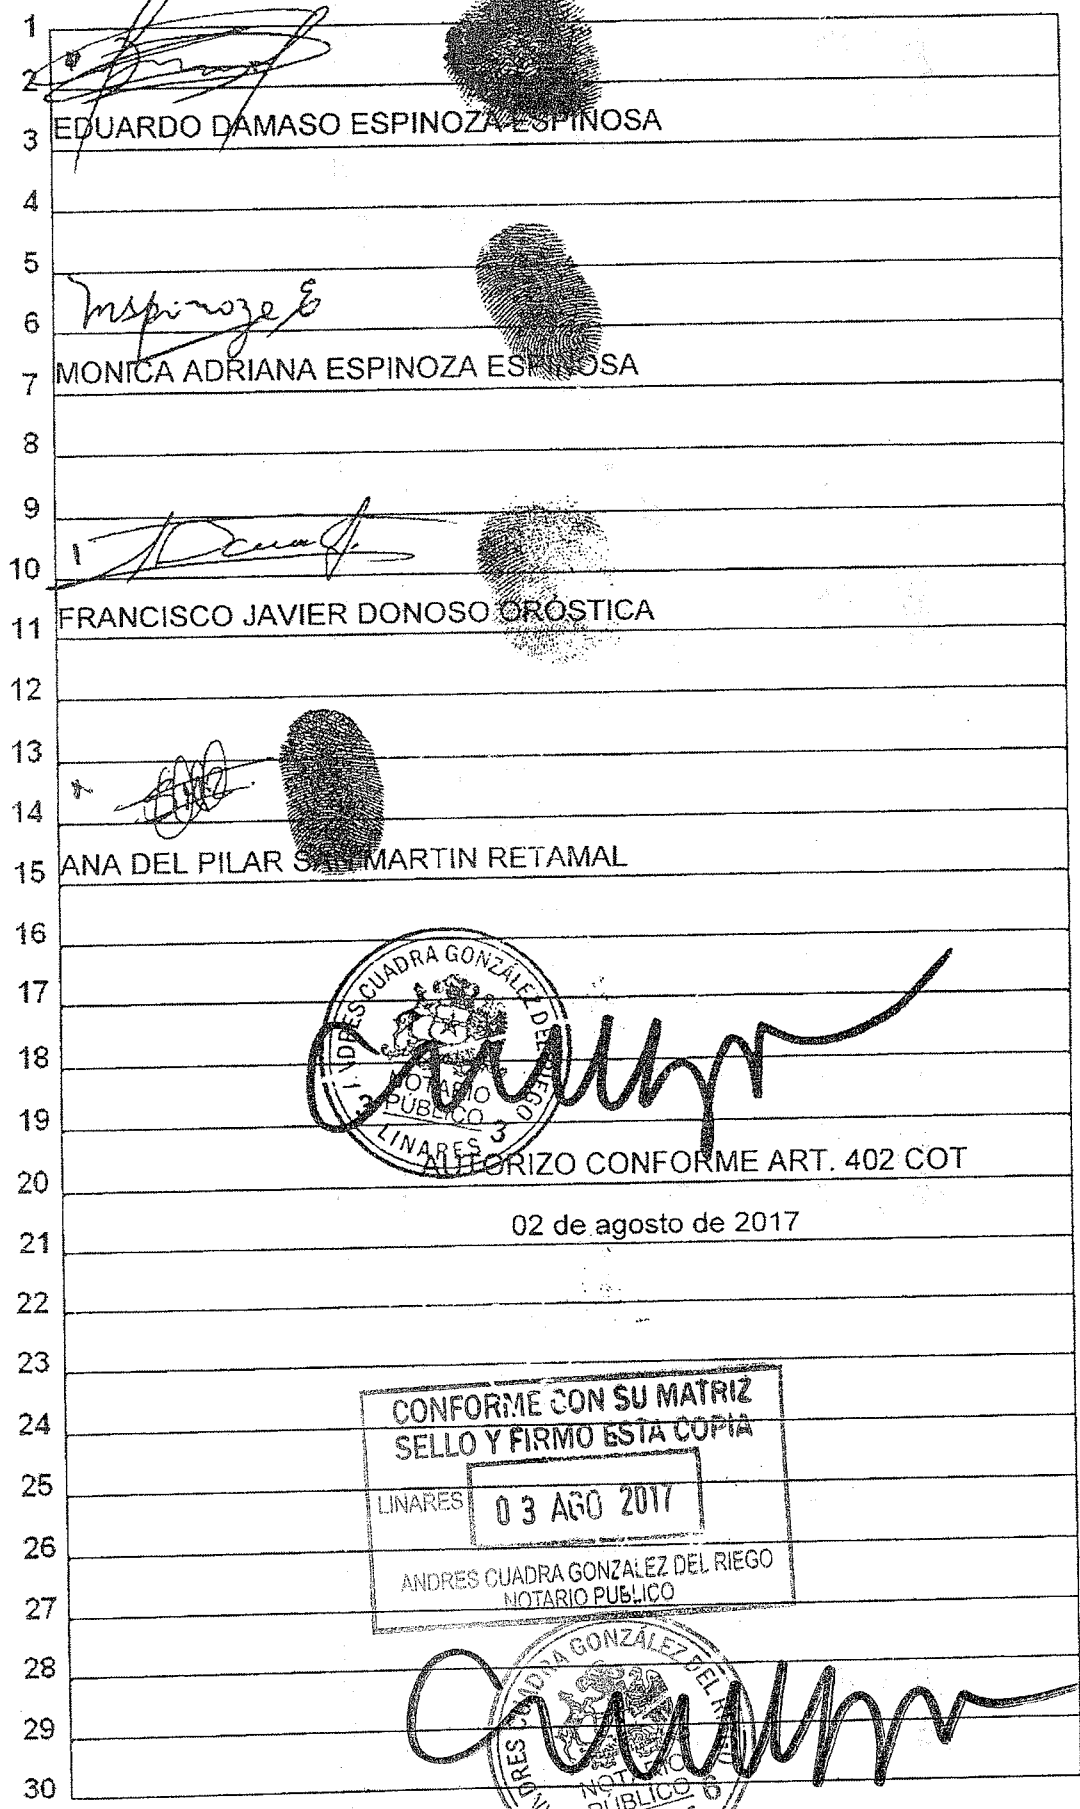 1
2
EDUARDO DAMASO ESPINOZA ESPINOSA
3
4
5
mspinoza E
6
MONICA ADRIANA ESPINOZA ESPINOSA
7
8
9
10
FRANCISCO JAVIER DONOSO ORÓSTICA
11
12
13
14
ANA DEL PILAR SAN MARTIN RETAMAL
15
16
ANDRES CUADRA GONZÁLEZ DEL RIEGO
17
18
NOTARIO
PÚBLICO
19
3 LINARES 3
AUTORIZO CONFORME ART. 402 COT
20
02 de agosto de 2017
21
22
23
CONFORME CON SU MATRIZ
24
SELLO Y FIRMO ESTA COPIA
25
LINARES 03 AGO 2017
26
ANDRES CUADRA GONZALEZ DEL RIEGO
27
NOTARIO PUBLICO
28
CUADRA GONZÁLEZ DEL
29
NOTARIO
30
PÚBLICO 6